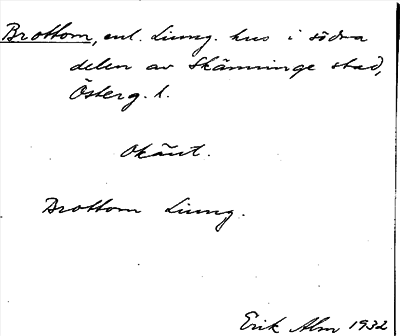 Brottom, enl. Ljung. hus i södra
delen av Skänninge stad,
Österg. l.
Okänt.
Brottom Ljung.
Erik Alm 1932